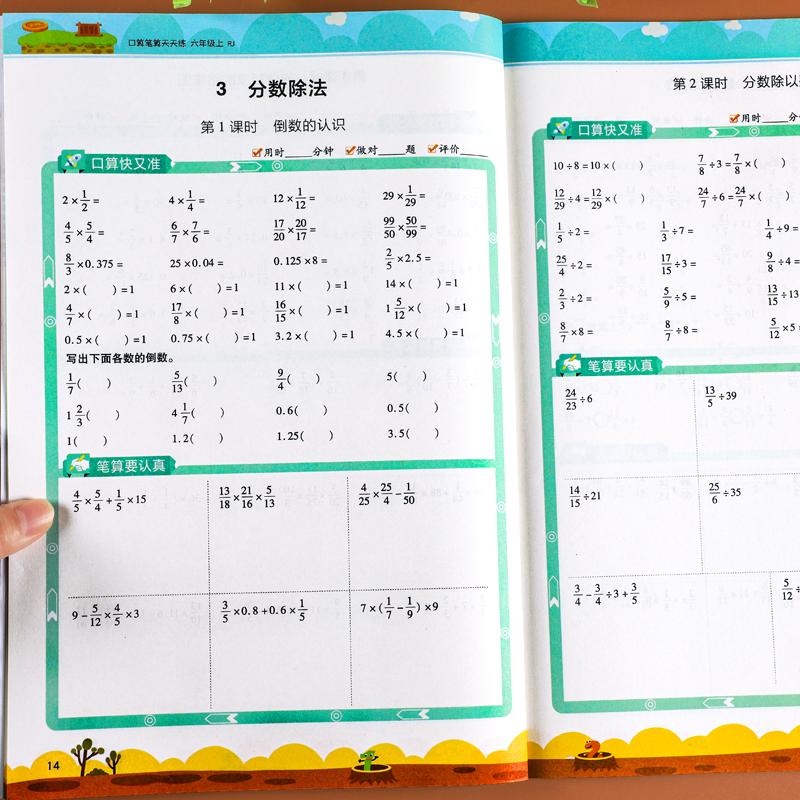 口算笔算天天练 六年级上 RJ
3 分数除法
第1课时 倒数的认识
用时____分钟 做对____题 评价____
口算快又准
2×1/2= 4×1/4= 12×1/12= 29×1/29=
4/5×5/4= 6/7×7/6= 17/20×20/17= 99/50×50/99=
8/3×0.375= 25×0.04= 0.125×8= 2/5×2.5=
2×( )=1 6×( )=1 11×( )=1 14×( )=1
4/7×( )=1 17/8×( )=1 16/15×( )=1 1 5/12×( )=1
0.5×( )=1 0.75×( )=1 3.2×( )=1 4.5×( )=1
写出下面各数的倒数。
1/7( ) 5/13( ) 9/4( ) 5( )
1 2/3( ) 4 1/7( ) 0.6( ) 0.5( )
1( ) 1.2( ) 1.25( ) 3.5( )
笔算要认真
4/5×5/4+1/5×15 13/18×21/16×5/13 4/25×25/4-1/50
9-5/12×4/5×3 3/5×0.8+0.6×1/5 7×(1/7-1/9)×9
14
第2课时 分数除以
用时____分
口算快又准
10÷8=10×( ) 7/8÷3=7/8×(
12/29÷4=12/29×( ) 24/7÷6=24/7×(
1/5÷2= 1/3÷7= 1/4÷9=
25/4÷2= 17/15÷3= 9/8÷4=
2/3÷2= 5/9÷5= 13/15÷13
8/7×8= 8/7÷8= 5/12×5=
笔算要认真
24/23÷6 13/5÷39
14/15÷21 25/6÷35
3/4-3/4÷3+3/5 5/12÷